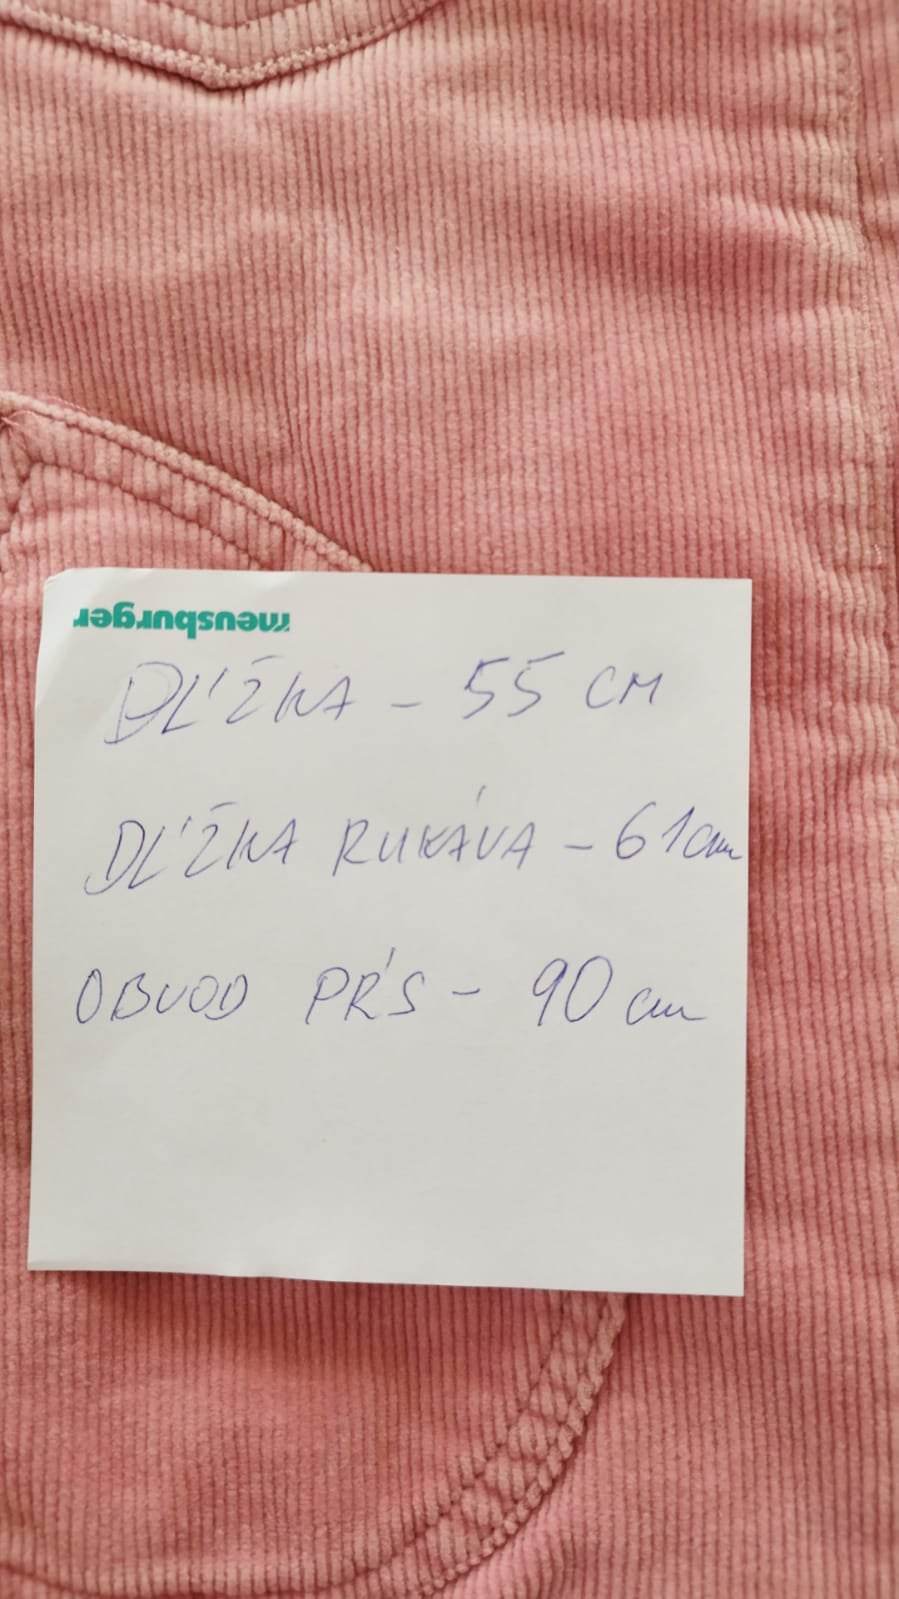 meusburger
DĹŽKA - 55 CM
DĹŽKA RUKÁVA - 61cm
OBVOD PŔS - 90 cm